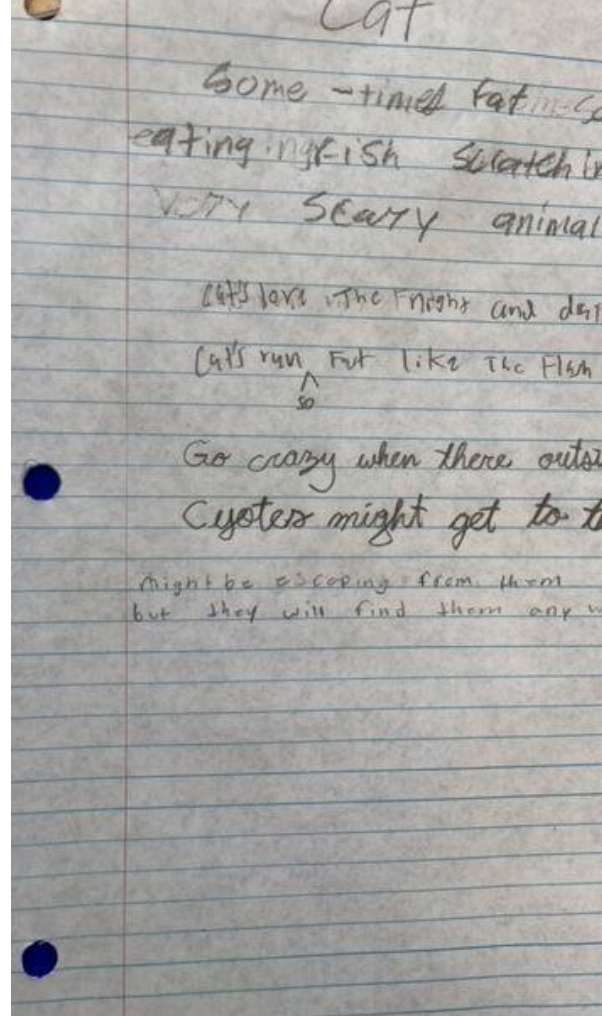 Cat
Some-times Fat
eating Fish Scratchin
Very Scary animal
Cat's love The night and
Cat's run so like The Flash
Go crazy when there outsi
Cyotes might get to t
might be escaping from them
but they will find them any w